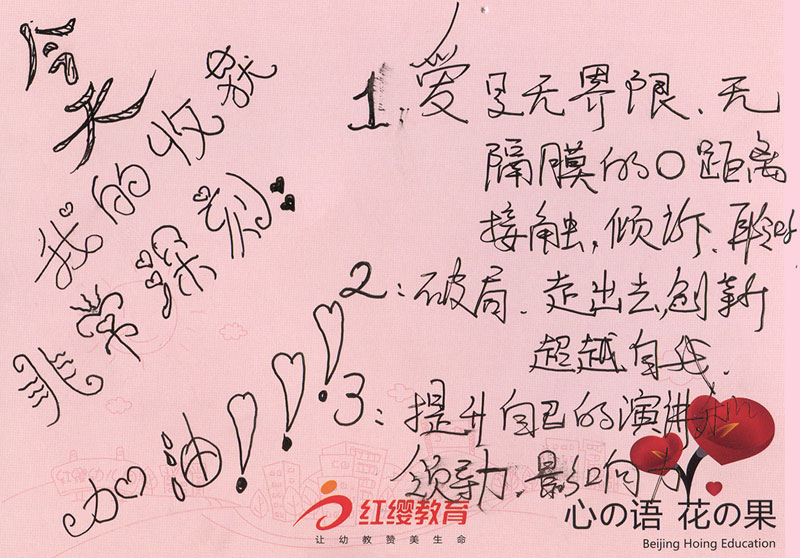 今天
我的收获
非常深刻
加油!!!
1.爱是无界限、无
隔膜的〇距离
接触,倾诉、聆听
2:破局、走出去,创新
超越自我.
3:提升自己的演讲
领导力、影响力
红缨教育
让幼教赞美生命
心の语 花の果
Beijing Hoing Education